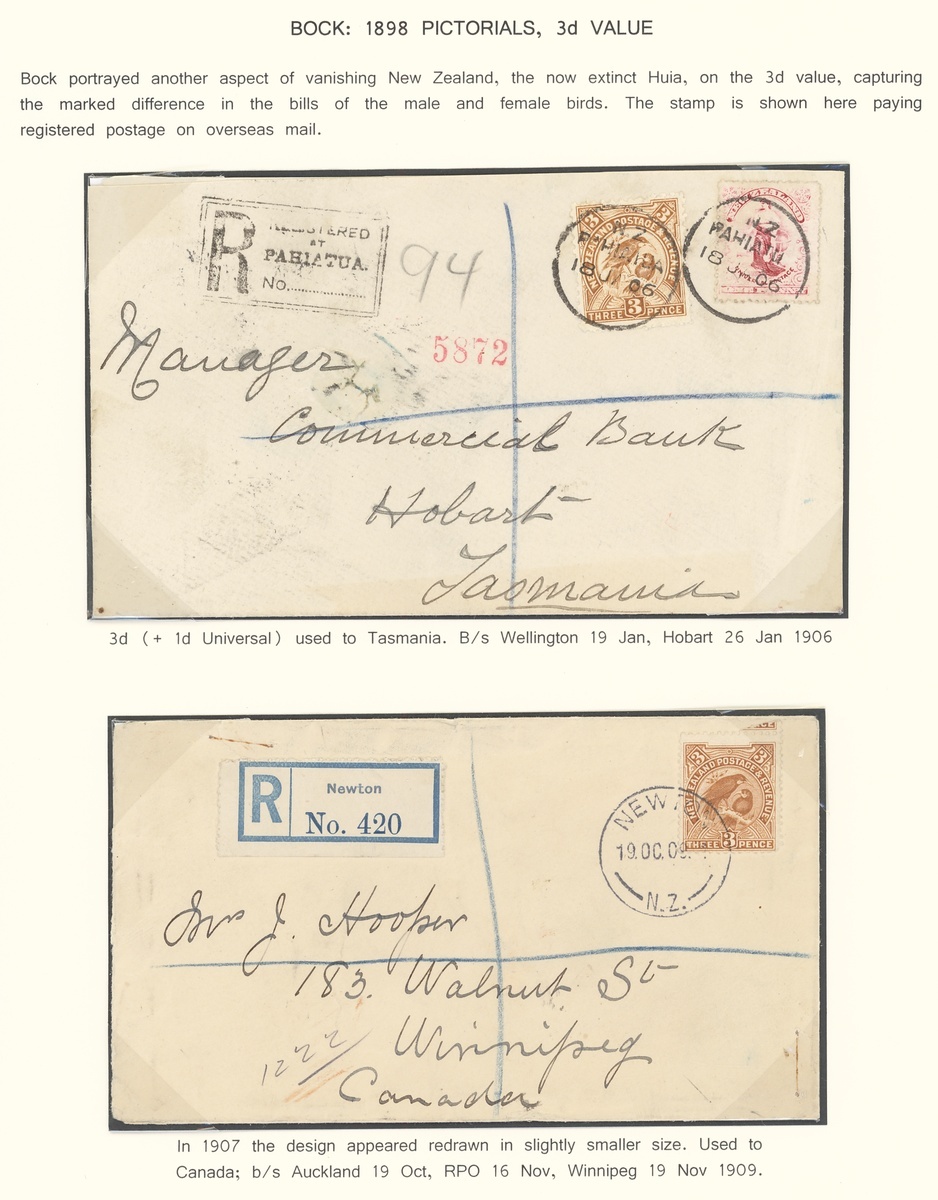 BOCK: 1898 PICTORIALS, 3d VALUE
Bock portrayed another aspect of vanishing New Zealand, the now extinct Huia, on the 3d value, capturing
the marked difference in the bills of the male and female birds. The stamp is shown here paying
registered postage on overseas mail.
R
REGISTERED
AT
PAHIATUA.
No.
94
N.Z
18 JA 06
THREE 3 PENCE
N.Z
PAHIATU
18 JA 06
5872
Manager
Commercial Bank
Hobart
Tasmania
3d (+ 1d Universal) used to Tasmania. B/s Wellington 19 Jan, Hobart 26 Jan 1906
R
Newton
No. 420
3 3
NEW ZEALAND POSTAGE & REVENUE
THREE 3 PENCE
19.OC.09
N.Z.
Mrs J. Hooper
183. Walnut St
Winnipeg
1222/
Canada
In 1907 the design appeared redrawn in slightly smaller size. Used to
Canada; b/s Auckland 19 Oct, RPO 16 Nov, Winnipeg 19 Nov 1909.